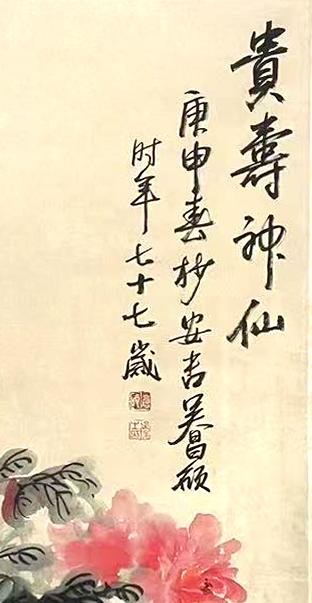 貴壽神仙
庚申春杪安吉吴昌碩
时年七十七歲